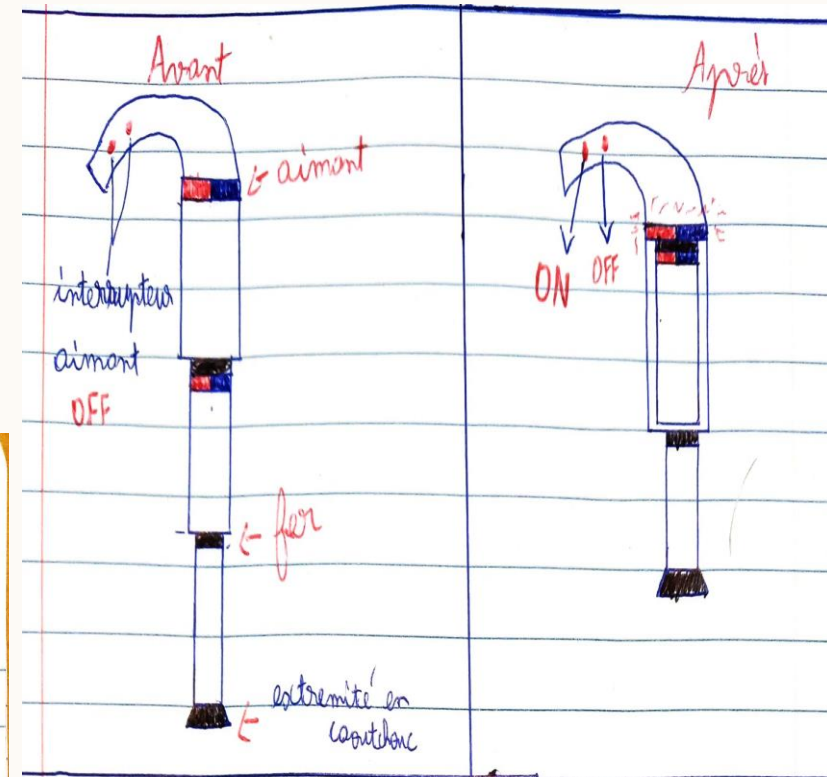 Avant
← aimant
interrupteur
aimant
OFF
← fer
← extremité en
caoutchouc
Après
ON
OFF